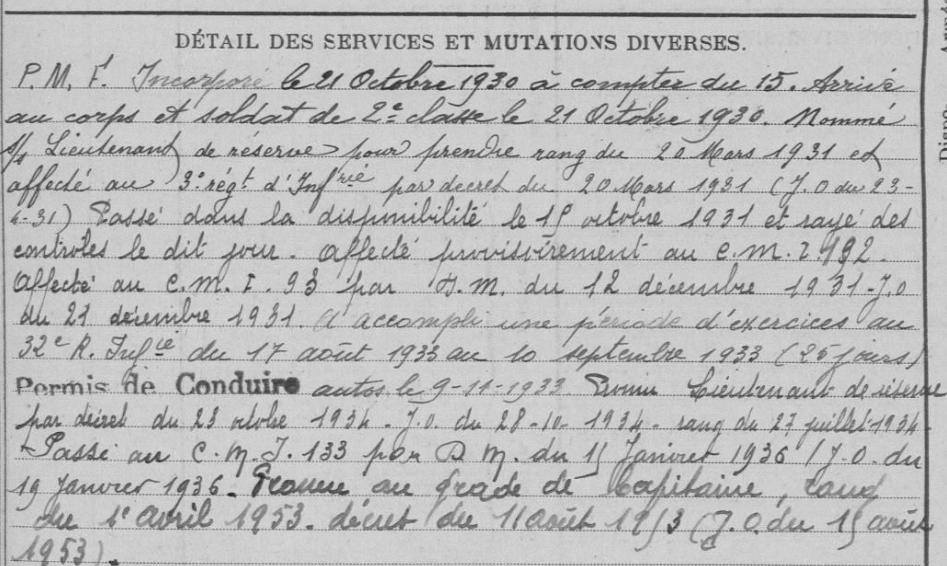 DÉTAIL DES SERVICES ET MUTATIONS DIVERSES.
P.M.F. Incorporé le 21 Octobre 1930 à compter du 15. Arrivé
au corps et soldat de 2e classe le 21 Octobre 1930. Nommé
s/s Lieutenant de réserve pour prendre rang du 20 Mars 1931 et
affecté au 3e régt d'Infrie par décret du 20 Mars 1931 (J.O du 23-
4-31) Passé dans la disponibilité le 15 octobre 1931 et rayé des
contrôles le dit jour. Affecté provisoirement au C.M.I. 192.
Affecté au C.M.I. 93 par D.M. du 12 décembre 1931 - J.O
du 21 décembre 1931. A accompli une période d'exercices au
32e R. Infie du 17 août 1933 au 10 septembre 1933 (25 jours)
Permis de Conduire autos le 9-11-1933 Promu Lieutenant de réserve
par décret du 23 octobre 1934 - J.O. du 28-10-1934 - rang du 27 juillet 1934 -
Passé au C.M.I. 133 par D.M. du 15 Janvier 1936 (J.O. du
19 Janvier 1936. Promu au grade de Capitaine, rang
du 1e avril 1953. décret du 11 août 1953 (J.O. du 15 août
1953).